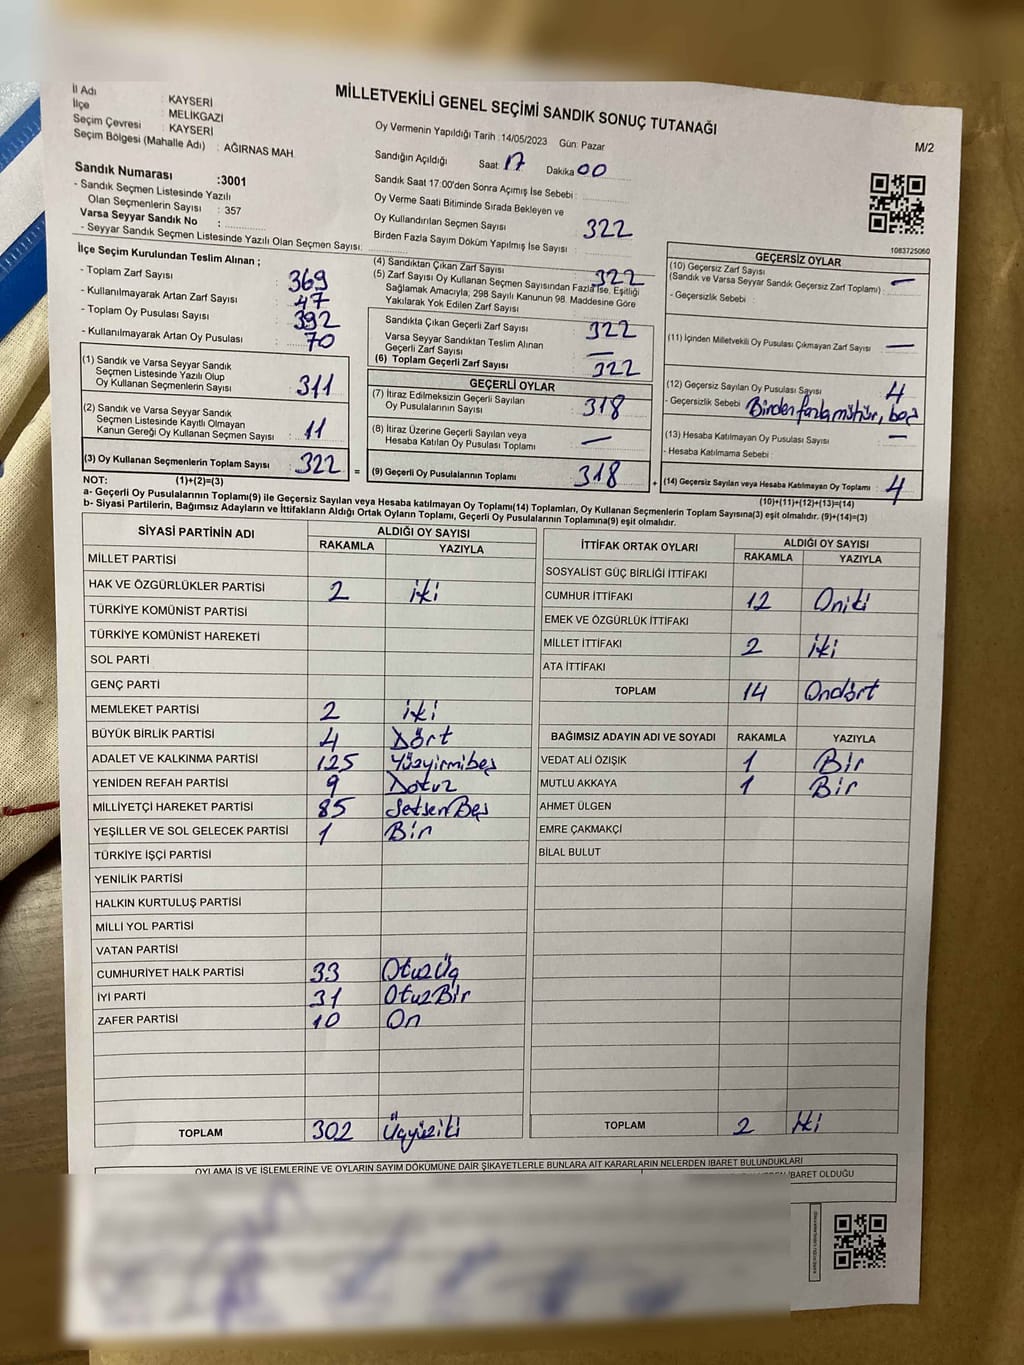 MİLLETVEKİLİ GENEL SEÇİMİ SANDIK SONUÇ TUTANAĞI
M/2
İl Adı : KAYSERİ
İlçe : MELİKGAZİ
Seçim Çevresi : KAYSERİ
Seçim Bölgesi (Mahalle Adı) : AĞIRNAS MAH
Sandık Numarası :3001
- Sandık Seçmen Listesinde Yazılı
Olan Seçmenlerin Sayısı : 357
Varsa Seyyar Sandık No :
- Seyyar Sandık Seçmen Listesinde Yazılı Olan Seçmen Sayısı:
Oy Vermenin Yapıldığı Tarih : 14/05/2023 Gün: Pazar
Sandığın Açıldığı Saat: 17 Dakika 00
Sandık Saat 17:00'den Sonra Açımış İse Sebebi :
Oy Verme Saati Bitiminde Sırada Bekleyen ve
Oy Kullandırılan Seçmen Sayısı : 322
Birden Fazla Sayım Döküm Yapılmış İse Sayısı :
1083725060
İlçe Seçim Kurulundan Teslim Alınan ;
- Toplam Zarf Sayısı : 369
- Kullanılmayarak Artan Zarf Sayısı : 47
- Toplam Oy Pusulası Sayısı : 392
- Kullanılmayarak Artan Oy Pusulası : 70
(1) Sandık ve Varsa Seyyar Sandık
Seçmen Listesinde Yazılı Olup
Oy Kullanan Seçmenlerin Sayısı : 311
(2) Sandık ve Varsa Seyyar Sandık
Seçmen Listesinde Kayıtlı Olmayan
Kanun Gereği Oy Kullanan Seçmen Sayısı : 11
(3) Oy Kullanan Seçmenlerin Toplam Sayısı : 322 =
(4) Sandıktan Çıkan Zarf Sayısı : 322
(5) Zarf Sayısı Oy Kullanan Seçmen Sayısından Fazla İse, Eşitliği
Sağlamak Amacıyla, 298 Sayılı Kanunun 98. Maddesine Göre
Yakılarak Yok Edilen Zarf Sayısı :
Sandıkta Çıkan Geçerli Zarf Sayısı : 322
Varsa Seyyar Sandıktan Teslim Alınan
Geçerli Zarf Sayısı : —
(6) Toplam Geçerli Zarf Sayısı : 322
GEÇERLİ OYLAR
(7) İtiraz Edilmeksizin Geçerli Sayılan
Oy Pusulalarının Sayısı : 318
(8) İtiraz Üzerine Geçerli Sayılan veya
Hesaba Katılan Oy Pusulası Toplamı : —
(9) Geçerli Oy Pusulalarının Toplamı : 318 +
GEÇERSİZ OYLAR
(10) Geçersiz Zarf Sayısı
(Sandık ve Varsa Seyyar Sandık Geçersiz Zarf Toplamı) : —
- Geçersizlik Sebebi :
(11) İçinden Milletvekili Oy Pusulası Çıkmayan Zarf Sayısı : —
(12) Geçersiz Sayılan Oy Pusulası Sayısı : 4
- Geçersizlik Sebebi : Birden fazla mühür, boş
(13) Hesaba Katılmayan Oy Pusulası Sayısı : —
- Hesaba Katılmama Sebebi :
(14) Geçersiz Sayılan veya Hesaba Katılmayan Oy Toplamı : 4
NOT: (1)+(2)=(3)
(10)+(11)+(12)+(13)=(14)
a- Geçerli Oy Pusulalarının Toplamı(9) ile Geçersiz Sayılan veya Hesaba katılmayan Oy Toplamı(14) Toplamları, Oy Kullanan Seçmenlerin Toplam Sayısına(3) eşit olmalıdır. (9)+(14)=(3)
b- Siyasi Partilerin, Bağımsız Adayların ve İttifakların Aldığı Ortak Oyların Toplamı, Geçerli Oy Pusulalarının Toplamına(9) eşit olmalıdır.
SİYASİ PARTİNİN ADI ALDIĞI OY SAYISI
RAKAMLA YAZIYLA
MİLLET PARTİSİ
HAK VE ÖZGÜRLÜKLER PARTİSİ 2 iki
TÜRKİYE KOMÜNİST PARTİSİ
TÜRKİYE KOMÜNİST HAREKETİ
SOL PARTİ
GENÇ PARTİ
MEMLEKET PARTİSİ 2 iki
BÜYÜK BİRLİK PARTİSİ 4 Dört
ADALET VE KALKINMA PARTİSİ 125 Yüzyirmibeş
YENİDEN REFAH PARTİSİ 9 Dokuz
MİLLİYETÇİ HAREKET PARTİSİ 85 SeksenBeş
YEŞİLLER VE SOL GELECEK PARTİSİ 1 Bir
TÜRKİYE İŞÇİ PARTİSİ
YENİLİK PARTİSİ
HALKIN KURTULUŞ PARTİSİ
MİLLİ YOL PARTİSİ
VATAN PARTİSİ
CUMHURİYET HALK PARTİSİ 33 OtuzÜç
İYİ PARTİ 31 OtuzBir
ZAFER PARTİSİ 10 On
TOPLAM 302 Üçyüziki
İTTİFAK ORTAK OYLARI ALDIĞI OY SAYISI
RAKAMLA YAZIYLA
SOSYALİST GÜÇ BİRLİĞİ İTTİFAKI
CUMHUR İTTİFAKI 12 Oniki
EMEK VE ÖZGÜRLÜK İTTİFAKI
MİLLET İTTİFAKI 2 iki
ATA İTTİFAKI
TOPLAM 14 Ondört
BAĞIMSIZ ADAYIN ADI VE SOYADI RAKAMLA YAZIYLA
VEDAT ALİ ÖZIŞIK 1 Bir
MUTLU AKKAYA 1 Bir
AHMET ÜLGEN
EMRE ÇAKMAKÇİ
BİLAL BULUT
TOPLAM 2 İki
OYLAMA İŞ VE İŞLEMLERİNE VE OYLARIN SAYIM DÖKÜMÜNE DAİR ŞİKAYETLERLE BUNLARA AİT KARARLARIN NELERDEN İBARET BULUNDUKLARI
İBARET OLDUĞU